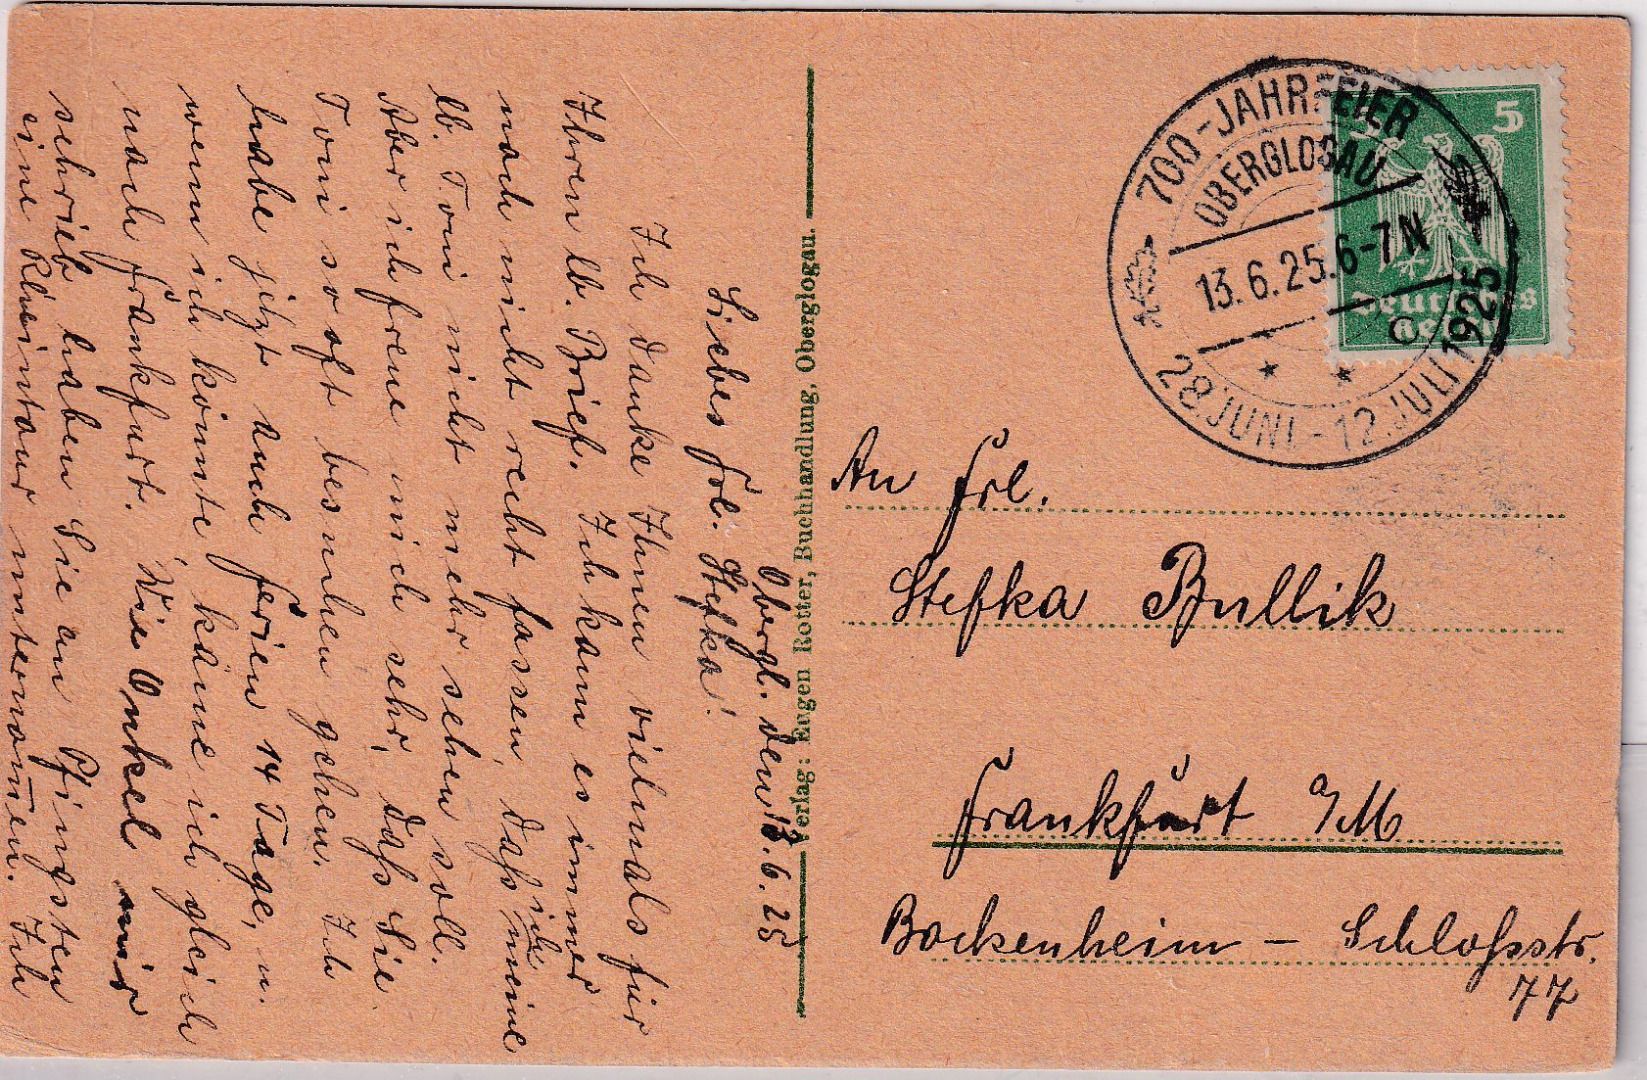 Obergl. den 13.6.25
Liebes Frl. Stefka!
Ich danke Ihnen vielmals für
Ihren lb. Brief. Ich kann es immer
noch nicht recht fassen, daß ich meine
lb. Toni nicht mehr sehen soll.
Aber ich freue mich sehr, daß Sie
Toni so oft besuchen gehen. Ich
habe jetzt auch Ferien 14 Tage, u.
wenn ich könnte, käme ich gleich
nach Frankfurt. Wie Onkel mir
schrieb haben Sie an Pfingsten
eine Rheintour unternom̅en. Ich
Verlag: Eugen Rotter, Buchhandlung, Oberglogau.
700-JAHRFEIER
OBERGLOGAU
13.6.25.6-7N
C
28 JUNI-12. JULI 1925
5
Deutsches
Reich
An Frl.
Stefka Bullik
Frankfurt a/M
Bockenheim – Schloßstr.
77